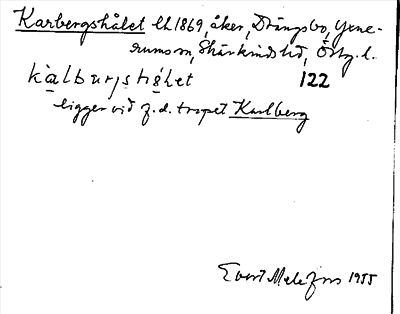 Karbergshålet lh 1869, åker, Drängsbo, Yxne-
rums sn, Skärkinds hd, Östg. l.
122
ligger vid f.d. torpet Karlberg
Evert Melefors 1955